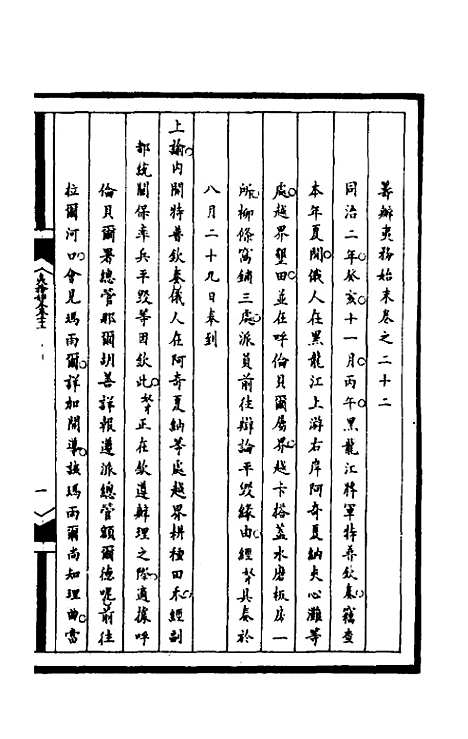 籌辦夷務始末卷之二十二
同治二年癸亥十一月丙午黑龍江將軍特普欽奏竊查
本年夏間俄人在黑龍江上游右岸阿奇夏納貞心灘等
處越界墾田並在呼倫貝爾屬界越卡搭蓋水磨板房一
所柳條窩鋪三處派員前往辯論平毀緣由經奴才具奏於
八月二十九日奉到
上諭內閣特普欽奏俄人在阿奇夏納等處越界耕種田禾經副
都統關保率兵平毀等因欽此奴才正在欽遵辦理之際適據呼
倫貝爾署總管那爾胡善詳報遵派總管額爾德呢前往
拉爾河口會見瑪雨爾詳加開導該瑪雨爾尚知理曲當
夷務始末卷二十二
一